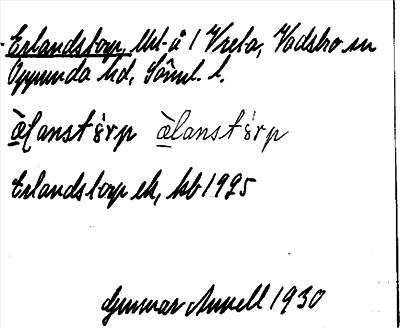 Erlandstorp, lht å 1 Vreta, Vadsbro sn
Oppunda hd, Söml. l.
ὰlanstṡrp ὰlanstṡrp
Erlandstorp ek, kb 1925
Gunnar Amnell 1930